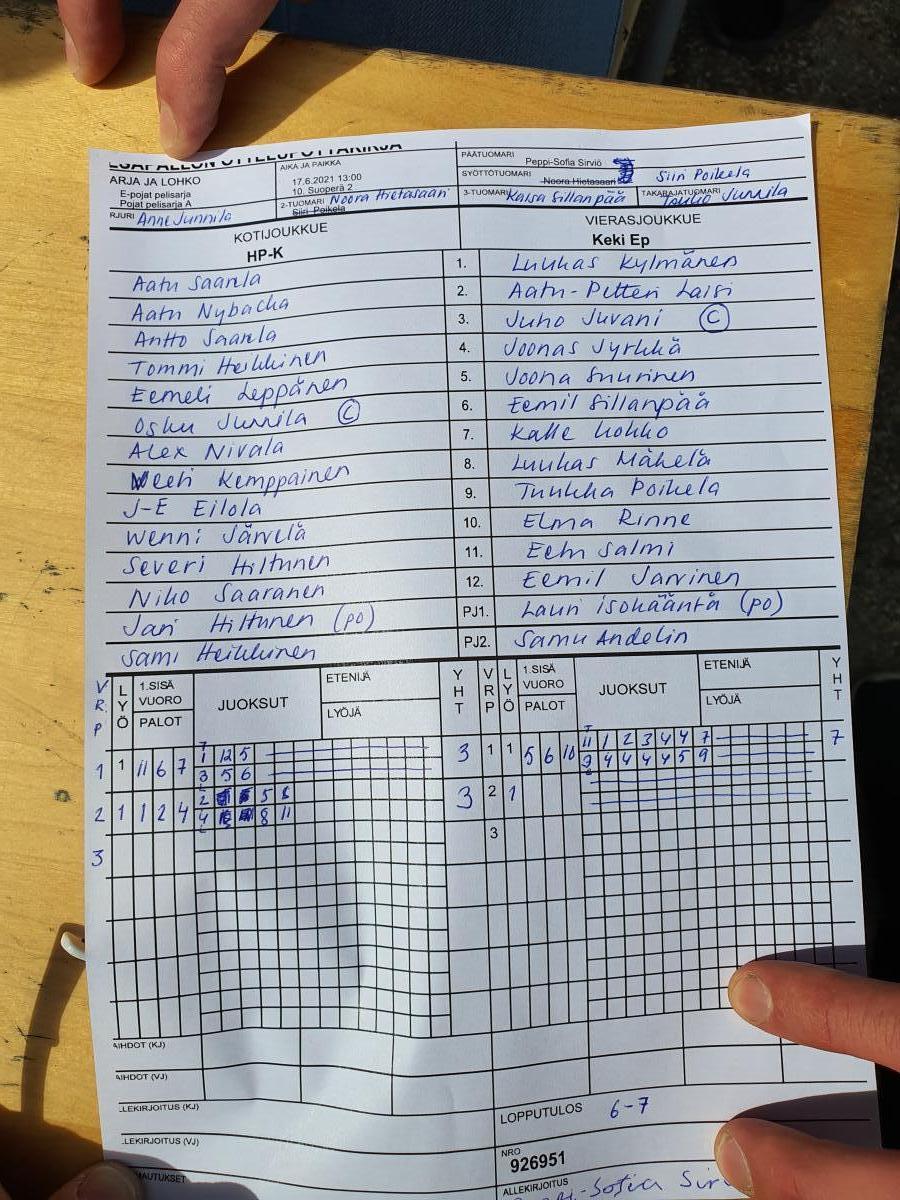 ARJA JA LOHKO
E-pojat pelisarja
Pojat pelisarja A
RJURI Anne Junnila
AIKA JA PAIKKA
17.6.2021 13:00
10. Suoperä 2
2-TUOMARI Noora Hietasaari
Siiri Poikela
PÄÄTUOMARI
Peppi-Sofia Sirviö
SYÖTTÖTUOMARI Noora Hietasaari Siiri Poikela
3-TUOMARI Kaisa Sillanpää TAKARAJATUOMARI Touko Junnila
KOTIJOUKKUE VIERASJOUKKUE
HP-K Keki Ep
Aatu Saarela 1. Luukas Kylmänen
Aatu Nybacka 2. Aatu-Petteri Laisi
Antto Saarela 3. Juho Juvani C
Tommi Heikkinen 4. Joonas Jyrkkä
Eemeli Leppänen 5. Joona Snurinen
Osku Junnila C 6. Eemil Sillanpää
Alex Nivala 7. Kalle Kokko
Veeti Kemppainen 8. Luukas Mäkelä
J-E Eilola 9. Tuukka Poikela
Wenni Järvelä 10. Elma Rinne
Severi Hiltunen 11. Eetu Salmi
Niko Saaranen 12. Eemil Jarvinen
Jari Hiltunen (po) PJ1. Lauri Isokääntä (po)
Sami Heikkinen PJ2. Samu Andelin
VRP LYÖ 1.SISÄ VUORO PALOT JUOKSUT ETENIJÄ LYÖJÄ YHT VRP LYÖ 1.SISÄ VUORO PALOT JUOKSUT ETENIJÄ LYÖJÄ YHT
1 1 11 6 7 1 12 5 3 1 1 5 6 10 11 1 2 3 4 4 7 7
3 5 6 2 4 4 4 4 5 9
2 1 1 2 4 2 5 8 3 2 1
4 8 11
3 3
AIHDOT (KJ)
AIHDOT (VJ)
LEKIRJOITUS (KJ)
LOPPUTULOS 6-7
LEKIRJOITUS (VJ)
NRO
926951
HAUTUKSET
ALLEKIRJOITUS